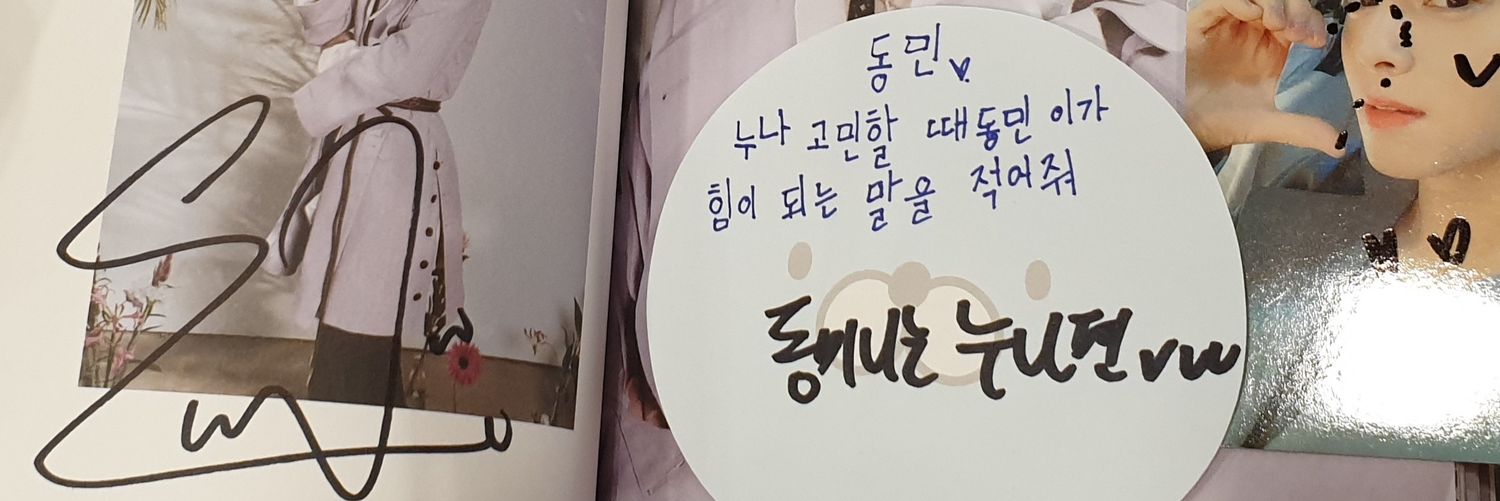 동민
누나 고민할 때 동민이가
힘이 되는 말을 적어줘
동미니는 누나편